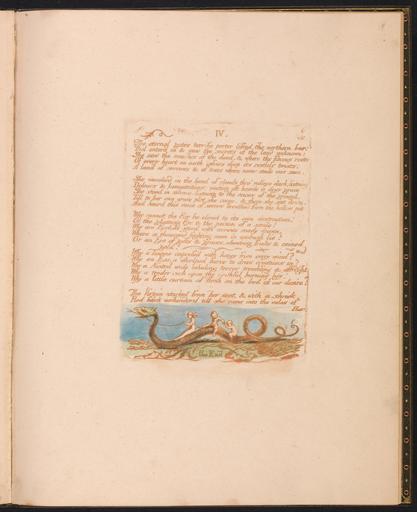 IV.
The eternal gates terrific porter lifted the northern bar:
Thel enter'd in & saw the secrets of the land unknown;
She saw the couches of the dead, & where the fibrous roots
Of every heart on earth infixes deep its restless twists:
A land of sorrows & of tears where never smile was seen.
She wanderd in the land of clouds thro' valleys dark, listning
Dolours & lamentations: waiting oft beside a dewy grave
She stood in silence, listning to the voices of the ground,
Till to her own grave plot she came, & there she sat down,
And heard this voice of sorrow breathed from the hollow pit
Why cannot the Ear be closed to its own destruction?
Or the glistning Eye to the poison of a smile!
Why are Eyelids stord with arrows ready drawn,
Where a thousand fighting men in ambush lie?
Or an Eye of gifts & graces, show'ring fruits & coined
gold!
Why a Tongue impress'd with honey from every wind?
Why an Ear, a whirlpool fierce to draw creations in?
Why a Nostril wide inhaling terror trembling & affright
Why a tender curb upon the youthful burning boy!
Why a little curtain of flesh on the bed of our desire?
The Virgin started from her seat, & with a shriek
Fled back unhinderd till she came into the vales of
Har
The End